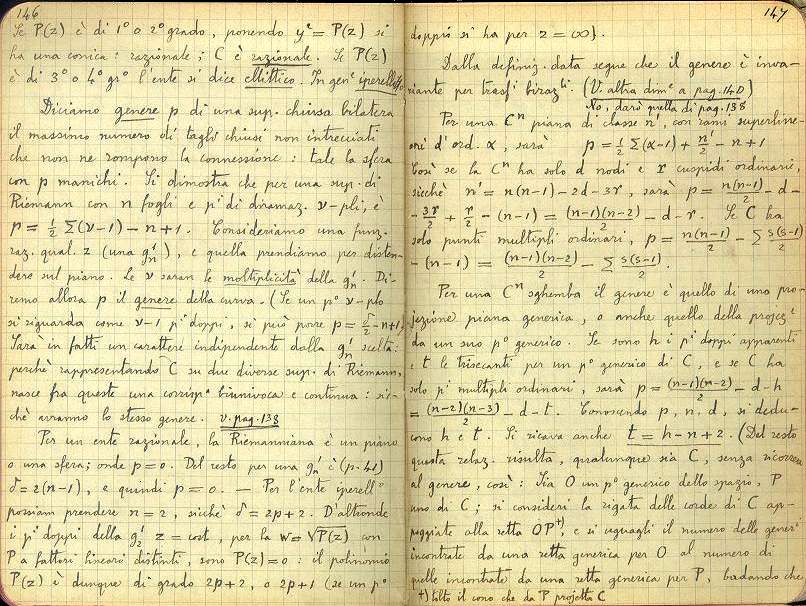 146
Se P(z) è di 1° o 2° grado, ponendo y² = P(z) si
ha una conica: razionale; C è razionale. Se P(z)
è di 3° o 4° gr° l'ente si dice ellittico. In gen^e iperellit^o
Diciamo genere p di una sup. chiusa bilatera
il massimo numero di tagli chiusi non intrecciati
che non ne rompono la connessione: tale la sfera
con p manichi. Si dimostra che per una sup. di
Riemann con n fogli e pⁱ di diramaz. ν-pli, è
p = ½ Σ(ν-1) - n+1. Consideriamo una funz.
raz. qual. z (una g¹ₙ), e quella prendiamo per disten-
dere sul piano. Le ν saran le molteplicità della g¹ₙ. Di-
remo allora p il genere della curva. (Se un p° ν-plo
si riguarda come ν-1 pⁱ doppi, si può porre p = δ/2 - n+1.
Sarà in fatti un carattere indipendente dalla g¹ₙ scelta:
perchè rappresentando C su due diverse sup. di Riemann,
nasce fra queste una corrisp^a biunivoca e continua: sic-
chè avranno lo stesso genere. v. pag. 138
Per un ente razionale, la Riemanniana è un piano
o una sfera; onde p=0. Del resto per una g¹ₙ è (p. 41)
δ = 2(n-1), e quindi p = 0. — Per l'ente iperell°
possiam prendere n = 2, sicchè δ = 2p+2. D'altronde
i pⁱ doppi della g¹₂ z = cost, per la w = √P(z) con
P a fattori lineari distinti, sono P(z)=0: il polinomio
P(z) è dunque di grado 2p+2, o 2p+1 (se un p°
147
doppio si ha per z = ∞).
Dalla definiz. data segue che il genere è inva-
riante per trasfⁱ biraz^li (V. altra dim^e a pag. 140)
No, darò quella di pag. 138
Per una Cⁿ piana di classe n', con rami superlinea-
ri d'ord. α, sarà p = ½ Σ(α-1) + n'/2 - n+1
Così se la Cⁿ ha solo d nodi e r cuspidi ordinarie,
sicchè n' = n(n-1) - 2d - 3r, sarà p = n(n-1)/2 - d -
- 3r/2 + r/2 - (n-1) = (n-1)(n-2)/2 - d - r. Se C ha
solo punti multipli ordinari, p = n(n-1)/2 - Σ s(s-1)/2
- (n-1) = (n-1)(n-2)/2 - Σ s(s-1)/2.
Per una Cⁿ sghemba il genere è quello di una pro-
jezione piana generica, o anche quello della projez^e
da un suo p° generico. Se sono h i pⁱ doppi apparenti
e t le trisecanti per un p° generico di C, e se C ha
solo pⁱ multipli ordinari, sarà p = (n-1)(n-2)/2 - d - h
= (n-2)(n-3)/2 - d - t. Conoscendo p, n, d, si dedu-
cono h e t. Si ricava anche t = h - n + 2. (Del resto
questa relaz. risulta, qualunque sia C, senza ricorrere
al genere, così: Sia O un p° generico dello spazio, P
uno di C; si consideri la rigata delle corde di C ap-
poggiate alla retta OP⁺⁾, e si uguagli il numero delle gener^i
incontrate da una retta generica per O al numero di
quelle incontrate da una retta generica per P, badando che
⁺) tolto il cono che da P projetta C